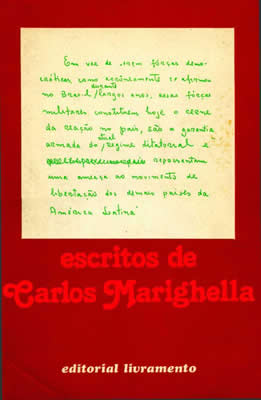 Em vez de serem fôrças demo-
cráticas como errôneamente se afirmou
durante
no Brasil / largos anos, essas fôrças
militares constituem hoje o cerne
da reação no país, são a garantia
atual
armada do / regime ditatorial e
representam
uma ameaça ao movimento de
libertação dos demais países da
América Latina
escritos de
Carlos Marighella
editorial livramento